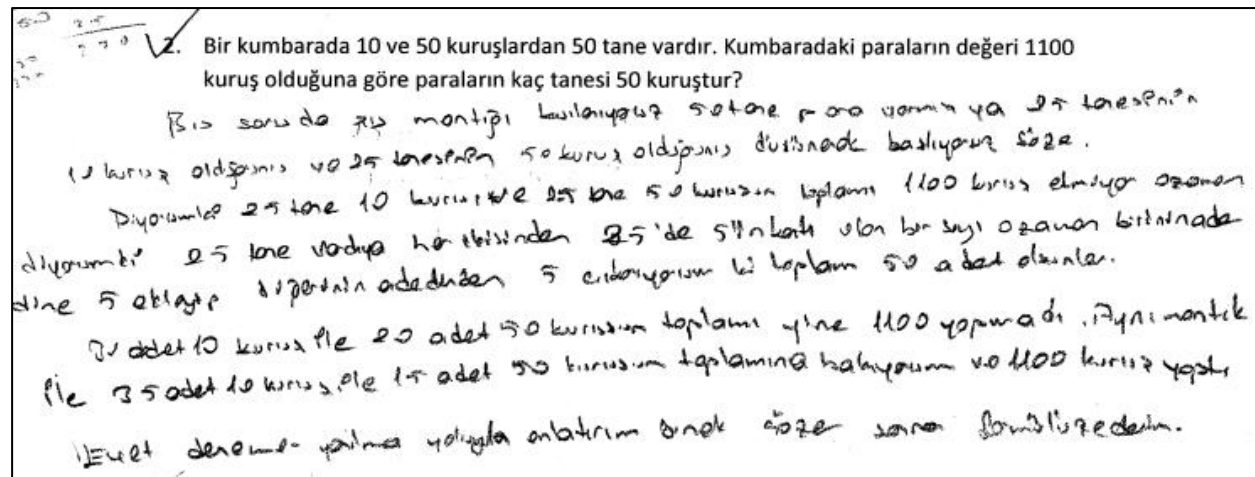 50 25
250
2. Bir kumbarada 10 ve 50 kuruşlardan 50 tane vardır. Kumbaradaki paraların değeri 1100
kuruş olduğuna göre paraların kaç tanesi 50 kuruştur?
Biz soruda şu mantığı kullanıyoruz 50 tane para varmış ya 25 tanesinin
10 kuruş olduğunu ve 25 tanesinin 50 kuruş olduğunu düşünerek başlıyoruz söze.
Diyorumki 25 tane 10 kuruş ve 25 tane 50 kuruşun toplamı 1100 kuruş etmiyor ozaman
diyorumki 25 tane vardıya her ikisinden 25'de 5'in katı olan bir sayı ozaman birinin ade
dine 5 ekleyip diğerinin adedinden 5 çıkarıyorum ki toplam 50 adet olsunlar.
30 adet 10 kuruş ile 20 adet 50 kuruşun toplamı yine 1100 yapmadı. Aynı mantık
ile 35 adet 10 kuruş ile 15 adet 50 kuruşun toplamına bakıyorum ve 1100 kuruş yaptı.
Evet deneme-yanılma yoluyla anlatırım örnek çözer sonra formülüze ederim.